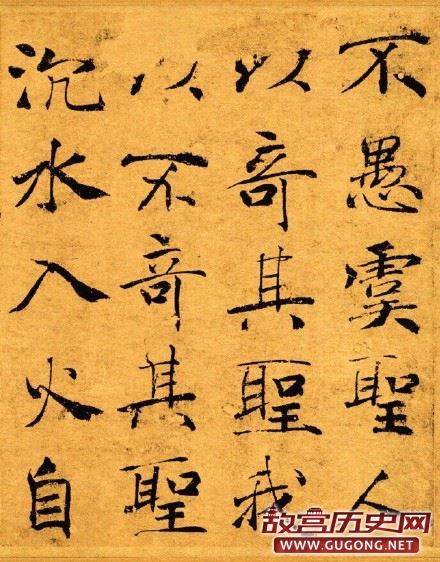 不愚虞聖人
以竒其聖我
以不竒其聖
沉水入火自
故宫历史网
www.GUGONG.net